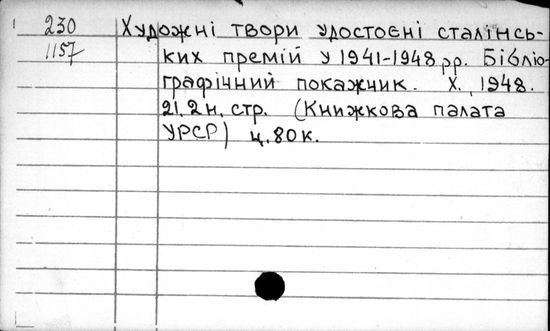 230 Художні твори удостоєні сталінсь-
1157 ких премій у 1941-1948 рр. Бібліо-
графічний покажчик. Х., 1948.
21, 2 н. стр. (Книжкова палата
УРСР) ц. 80 к.